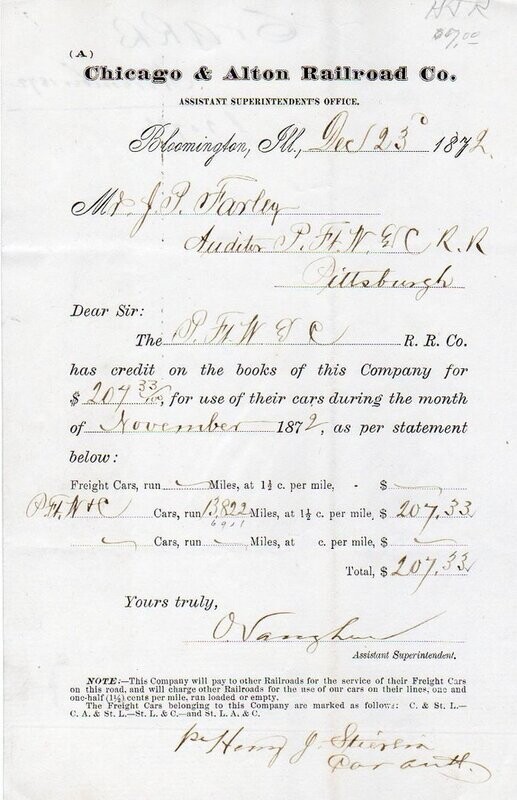 H J R
207.00
(A)
Chicago & Alton Railroad Co.
ASSISTANT SUPERINTENDENT'S OFFICE.
Bloomington, Ill., Dec 23d 1872.
Mr. J. P. Farley
Auditor P. Ft. W. & C R. R
Pittsburgh
Dear Sir:
The P. Ft W & C R. R. Co.
has credit on the books of this Company for
$ 207 33/100, for use of their cars during the month
of November 1872, as per statement
below:
Freight Cars, run Miles, at 1½ c. per mile, - $
P Ft. W & C Cars, run 13822 Miles, at 1½ c. per mile, $ 207.33
6911
Cars, run Miles, at c. per mile, $
Total, $ 207.33
Yours truly,
O Vaughan
Assistant Superintendent.
NOTE:—This Company will pay to other Railroads for the service of their Freight Cars
on this road, and will charge other Railroads for the use of our cars on their lines, one and
one-half (1½) cents per mile, run loaded or empty.
The Freight Cars belonging to this Company are marked as follows: C. & St. L.—
C. A. & St. L.—St. L. & C.—and St. L. A. & C.
per Henry J.
Car